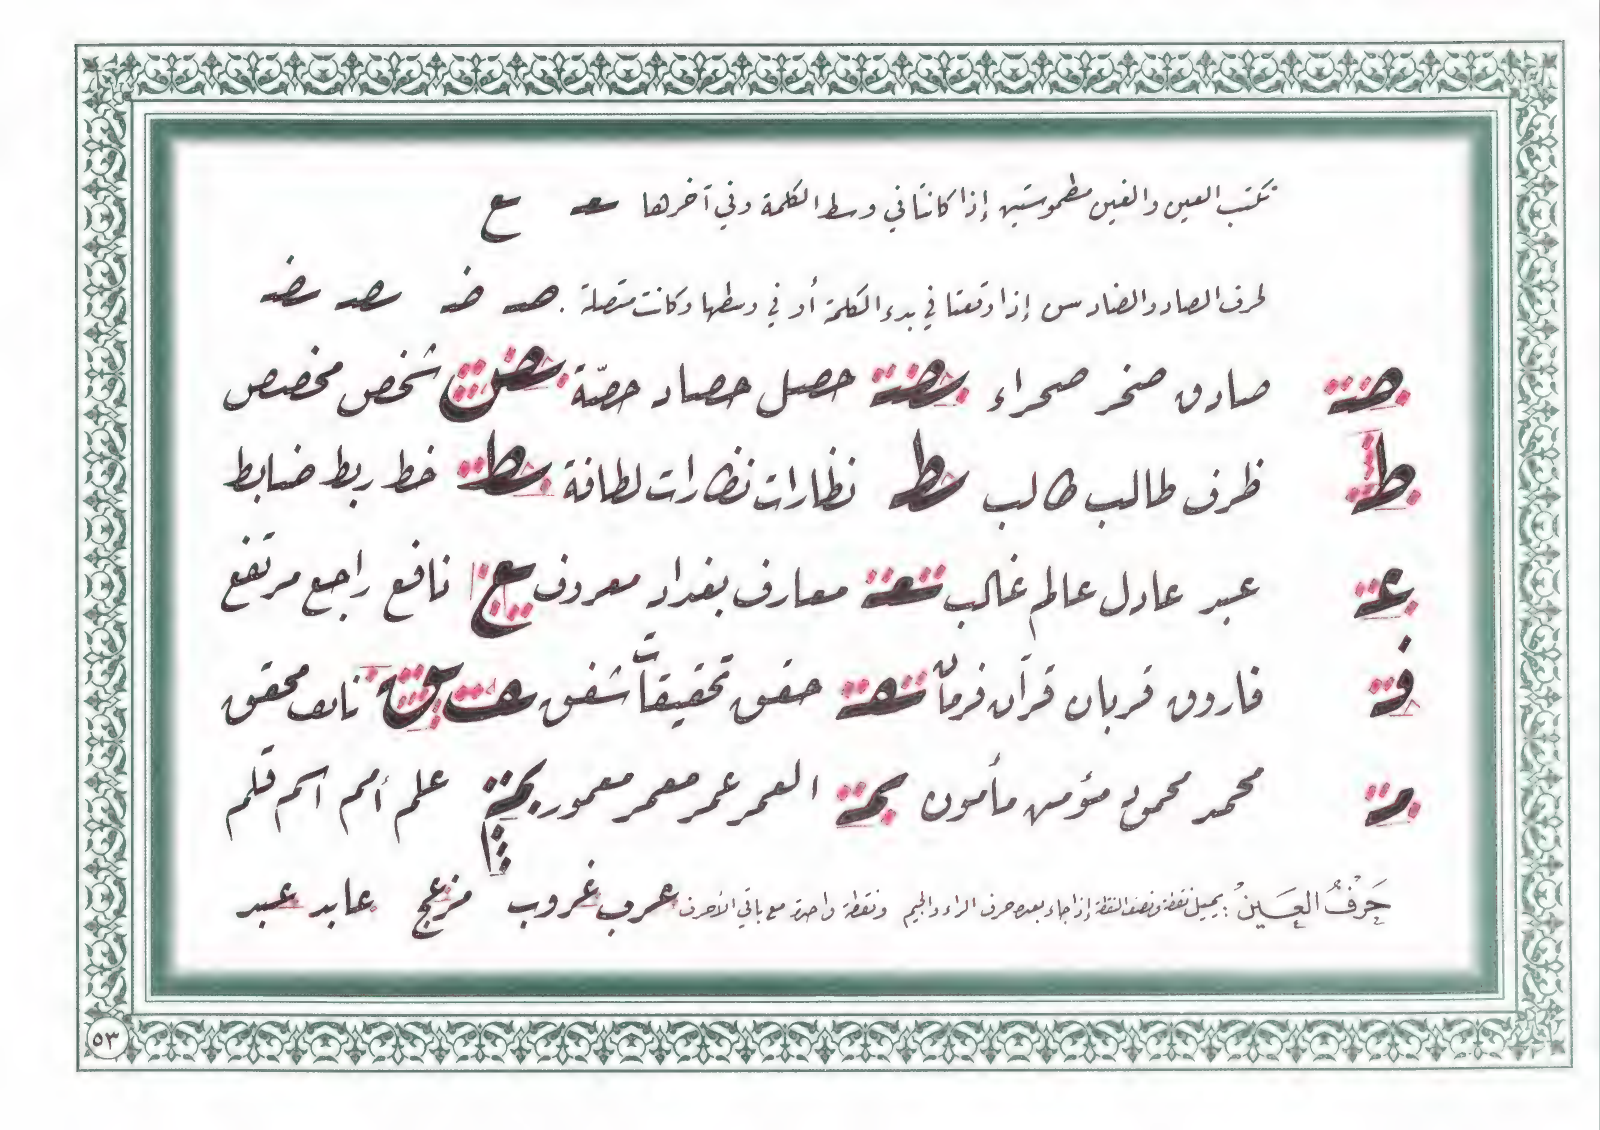 تكتب العين والغين مطموستين إذا كانتا في وسط الكلمة وفي آخرها ـعـ ـع
لحرف الصاد والضاد سن إذا وقعتا في بدء الكلمة أو في وسطها وكانت متصلة . صـ ضـ ـصـ ـضـ
صـ صادق صخر صحراء ـصـ حصل حصاد حصّة ـص شخص مخصص
ط ظرف طالب طالب ـط نظارات نظارات لطافة ـط خط ربط ضابط
عـ عبد عادل عالم غالب ـعـ معارف بغداد معروف ـع نافع راجع مرتفع
فـ فاروق قربان قرآن فرمان ـفـ حقق تحقيقاً شفق ـف ـق نايف محقق
مـ محمد محمود مؤمن مأمون ـمـ العمر عمر معمر معمور ـم علم أمم اسم قلم
حَرْفُ العَـيـنْ : يميل نقطة ونصف النقطة إذا جاء بعده حرف الراء والجيم ونقطة واحدة مع باقي الأحرف عرب غروب مزعج عابد عبد
٥٣